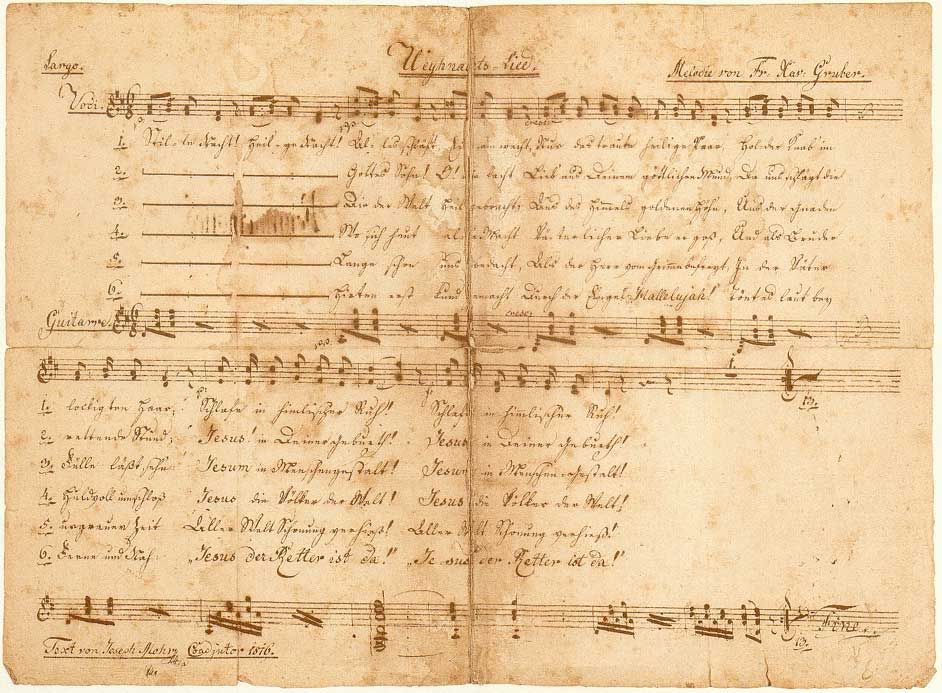 Largo. Weyhnachts-Lied. Melodie von Fr: Xav: Gruber.
Voci.
cresc:
1. Stil-le Nacht! Heil-ge Nacht! Al-les schläft. Einsam wacht, Nur das traute heilige Paar. Hol-der Knab' im
2. Gottes Sohn! O! wie lacht Lieb' aus Deinem göttlichen Mund, Da uns schlägt die
3. Die der Welt Heil gebracht, Aus des Himmels goldenen Höhn, Uns der Gnaden
4. Wo sich heut alle Macht Väterlicher Liebe ergoß, Und als Bruder
5. Lange schon uns bedacht, Als der Herr vom Grimme befreyt, In der Väter
6. Hirten erst kundgemacht Durch der Engel Hallelujah! Tönt es laut bey
Guitarre. cresc:
1. lockigten Haar; Schlafe in himlischer Ruh! Schlafe in himlischer Ruh!
2. rettende Stund; Jesus! in Deiner Geburth! Jesus in Deiner Geburth!
3. Fülle läßt sehn Jesum in Menschengestalt! Jesum in Menschengestalt!
4. Huldvoll umschloß Jesus die Völker der Welt! Jesus die Völker der Welt!
5. urgrauer Zeit Aller Welt Schonung verhieß! Aller Welt Schonung verhieß!
6. Ferne und Nah: „Jesus der Retter ist da!" „Jesus der Retter ist da!"
Fine.
Text von Joseph Mohr Coadjutor 1816.